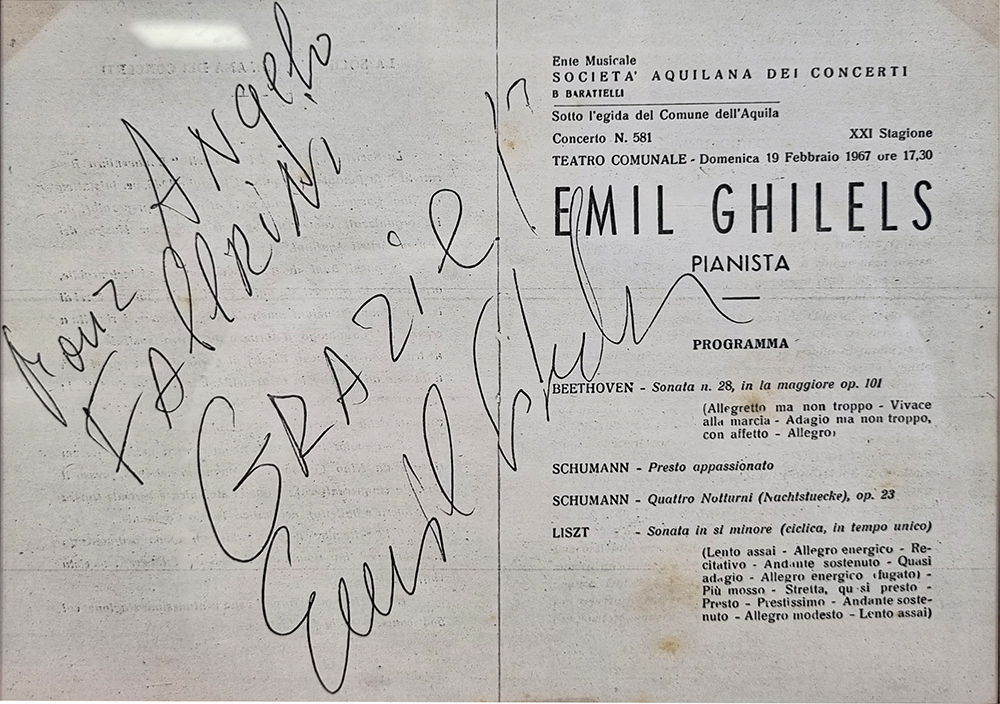 ANGelo
FAbbRiNi
GRAZie!
Emil Gilels
Ente Musicale
SOCIETA' AQUILANA DEI CONCERTI
B BARATTELLI
Sotto l'egida del Comune dell'Aquila
Concerto N. 581 XXI Stagione
TEATRO COMUNALE - Domenica 19 Febbraio 1967 ore 17,30
EMIL GHILELS
PIANISTA
PROGRAMMA
BEETHOVEN - Sonata n. 28, in la maggiore op. 101
(Allegretto ma non troppo - Vivace
alla marcia - Adagio ma non troppo,
con affetto - Allegro)
SCHUMANN - Presto appassionato
SCHUMANN - Quattro Notturni (Nachtstuecke), op. 23
LISZT - Sonata in si minore (ciclica, in tempo unico)
(Lento assai - Allegro energico - Re-
citativo - Andante sostenuto - Quasi
adagio - Allegro energico (fugato) -
Più mosso - Stretta, qu si presto -
Presto - Prestissimo - Andante soste-
nuto - Allegro modesto - Lento assai)